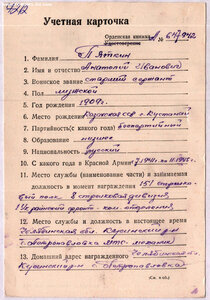 Учетная карточка
Орденская книжка
Удостоверение № 647442
1. Фамилия Пяткин
2. Имя и отчество Анатолий Иванович
3. Воинское звание старший сержант
4. Пол мужской
5. Год рождения 1909 г.
6. Место рождения г. Кустанай
7. Партийность(с какого года) беспартийный
8. Образование низшее
9. Национальность русский
10. С какого года в Красной Армии 1941 по 1945 г.
11. Место службы (наименование части) и занимаемая
должность в момент награждения 151 стрелко-
вый полк 8 стрелковой дивизии,
1 Украинский фронт ком. отделения.
12. Место службы и должность в настоящее время
Челябинская обл
механик
13. Домашний адрес награжденного Челябинская о.